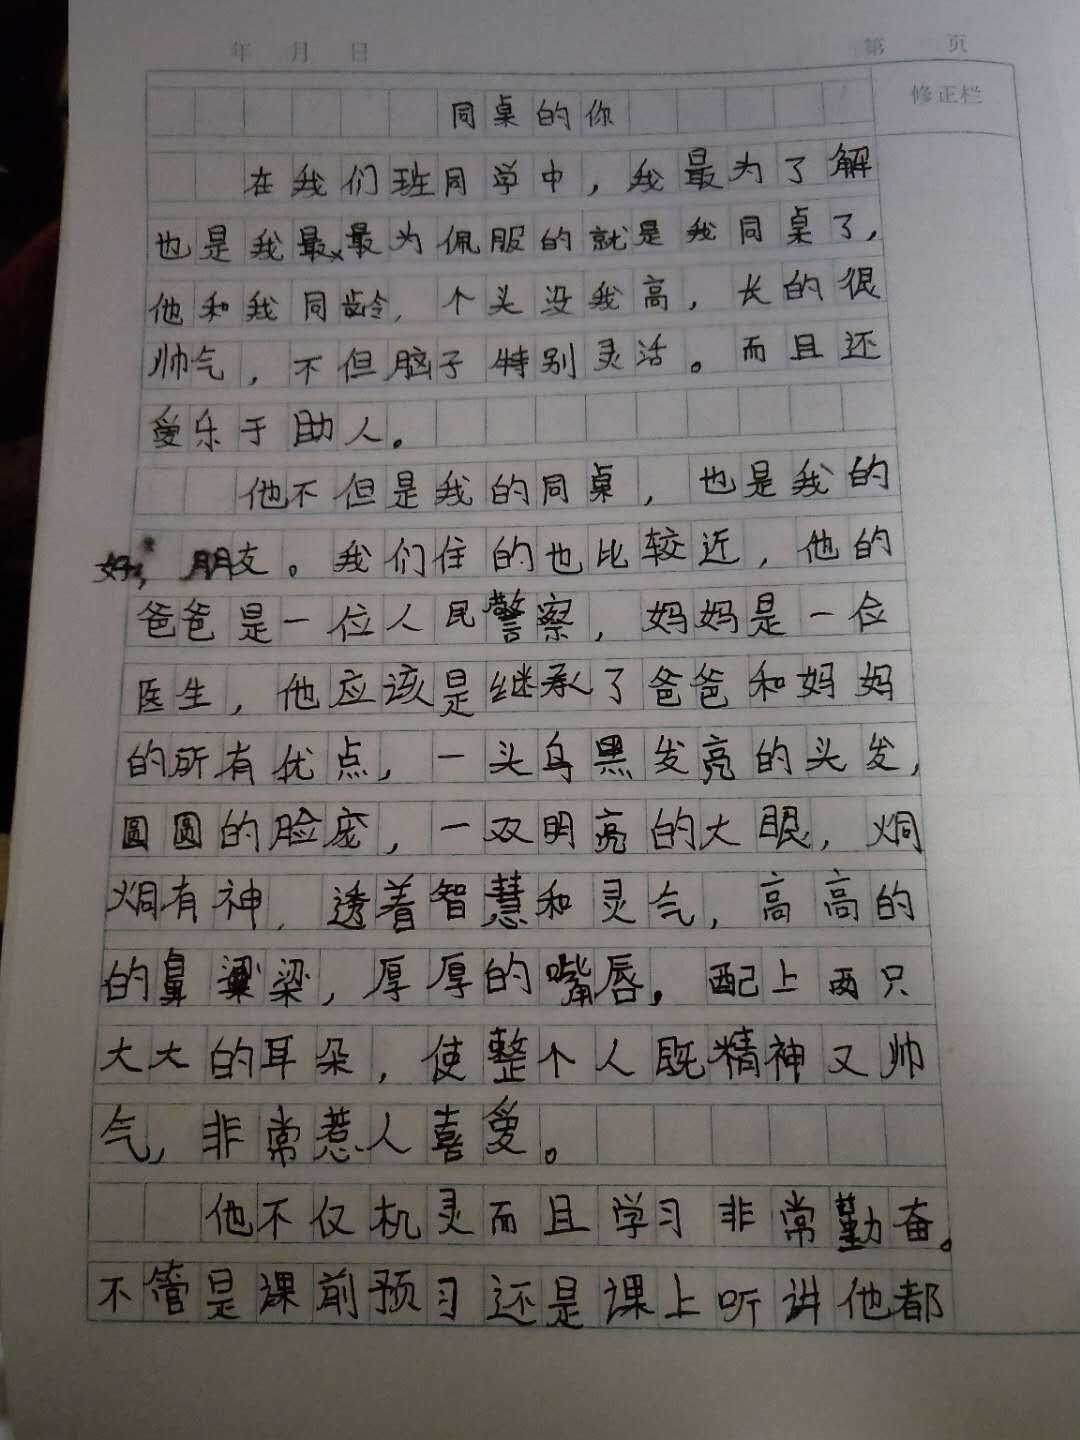 年 月 日
第 页
修正栏
同桌的你
在我们班同学中，我最为了解
也是我最最为佩服的就是我同桌了，
他和我同龄，个头没我高，长的很
帅气，不但脑子特别灵活。而且还
爱乐于助人。
他不但是我的同桌，也是我的
好，朋友。我们住的也比较近，他的
爸爸是一位人民警察，妈妈是一位
医生，他应该是继承了爸爸和妈妈
的所有优点，一头乌黑发亮的头发，
圆圆的脸庞，一双明亮的大眼，炯
炯有神，透着智慧和灵气，高高的
的鼻梁，厚厚的嘴唇，配上两只
大大的耳朵，使整个人既精神又帅
气，非常惹人喜爱。
他不仅机灵而且学习非常勤奋。
不管是课前预习还是课上听讲他都